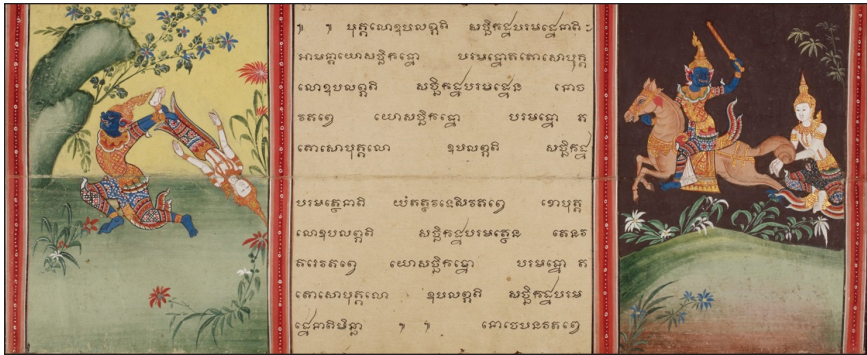 បុគ្គលោឧបលព្ភតិ សច្ឆិកដ្ឋបរមដ្ឋេនាតិ
អាមន្តាយោសច្ឆិកដ្ឋោ បរមដ្ឋោតតោសោបុគ្គ
លោឧបលព្ភតិ សច្ឆិកដ្ឋបរមដ្ឋេន
វតព្ពេ យោសច្ឆិកដ្ឋោ បរមដ្ឋោ ត
តោសោបុគ្គលោ ឧបលព្ភតិ សច្ឆិកដ្ឋ
បរមត្ថេនាតិ យំតត្ថវទេសិវតព្ពេ ខោបុគ្គ
លោឧបលព្ភតិ សច្ឆិកដ្ឋបរមត្ថេន តេនវ
វតព្ពេ យោសច្ឆិកដ្ឋោ បរមដ្ឋោ ត
តោសោបុគ្គលោ ឧបលព្ភតិ សច្ឆិកដ្ឋបរម
ដ្ឋេនាតិមិច្ឆា នោចេបនវតព្ពេ